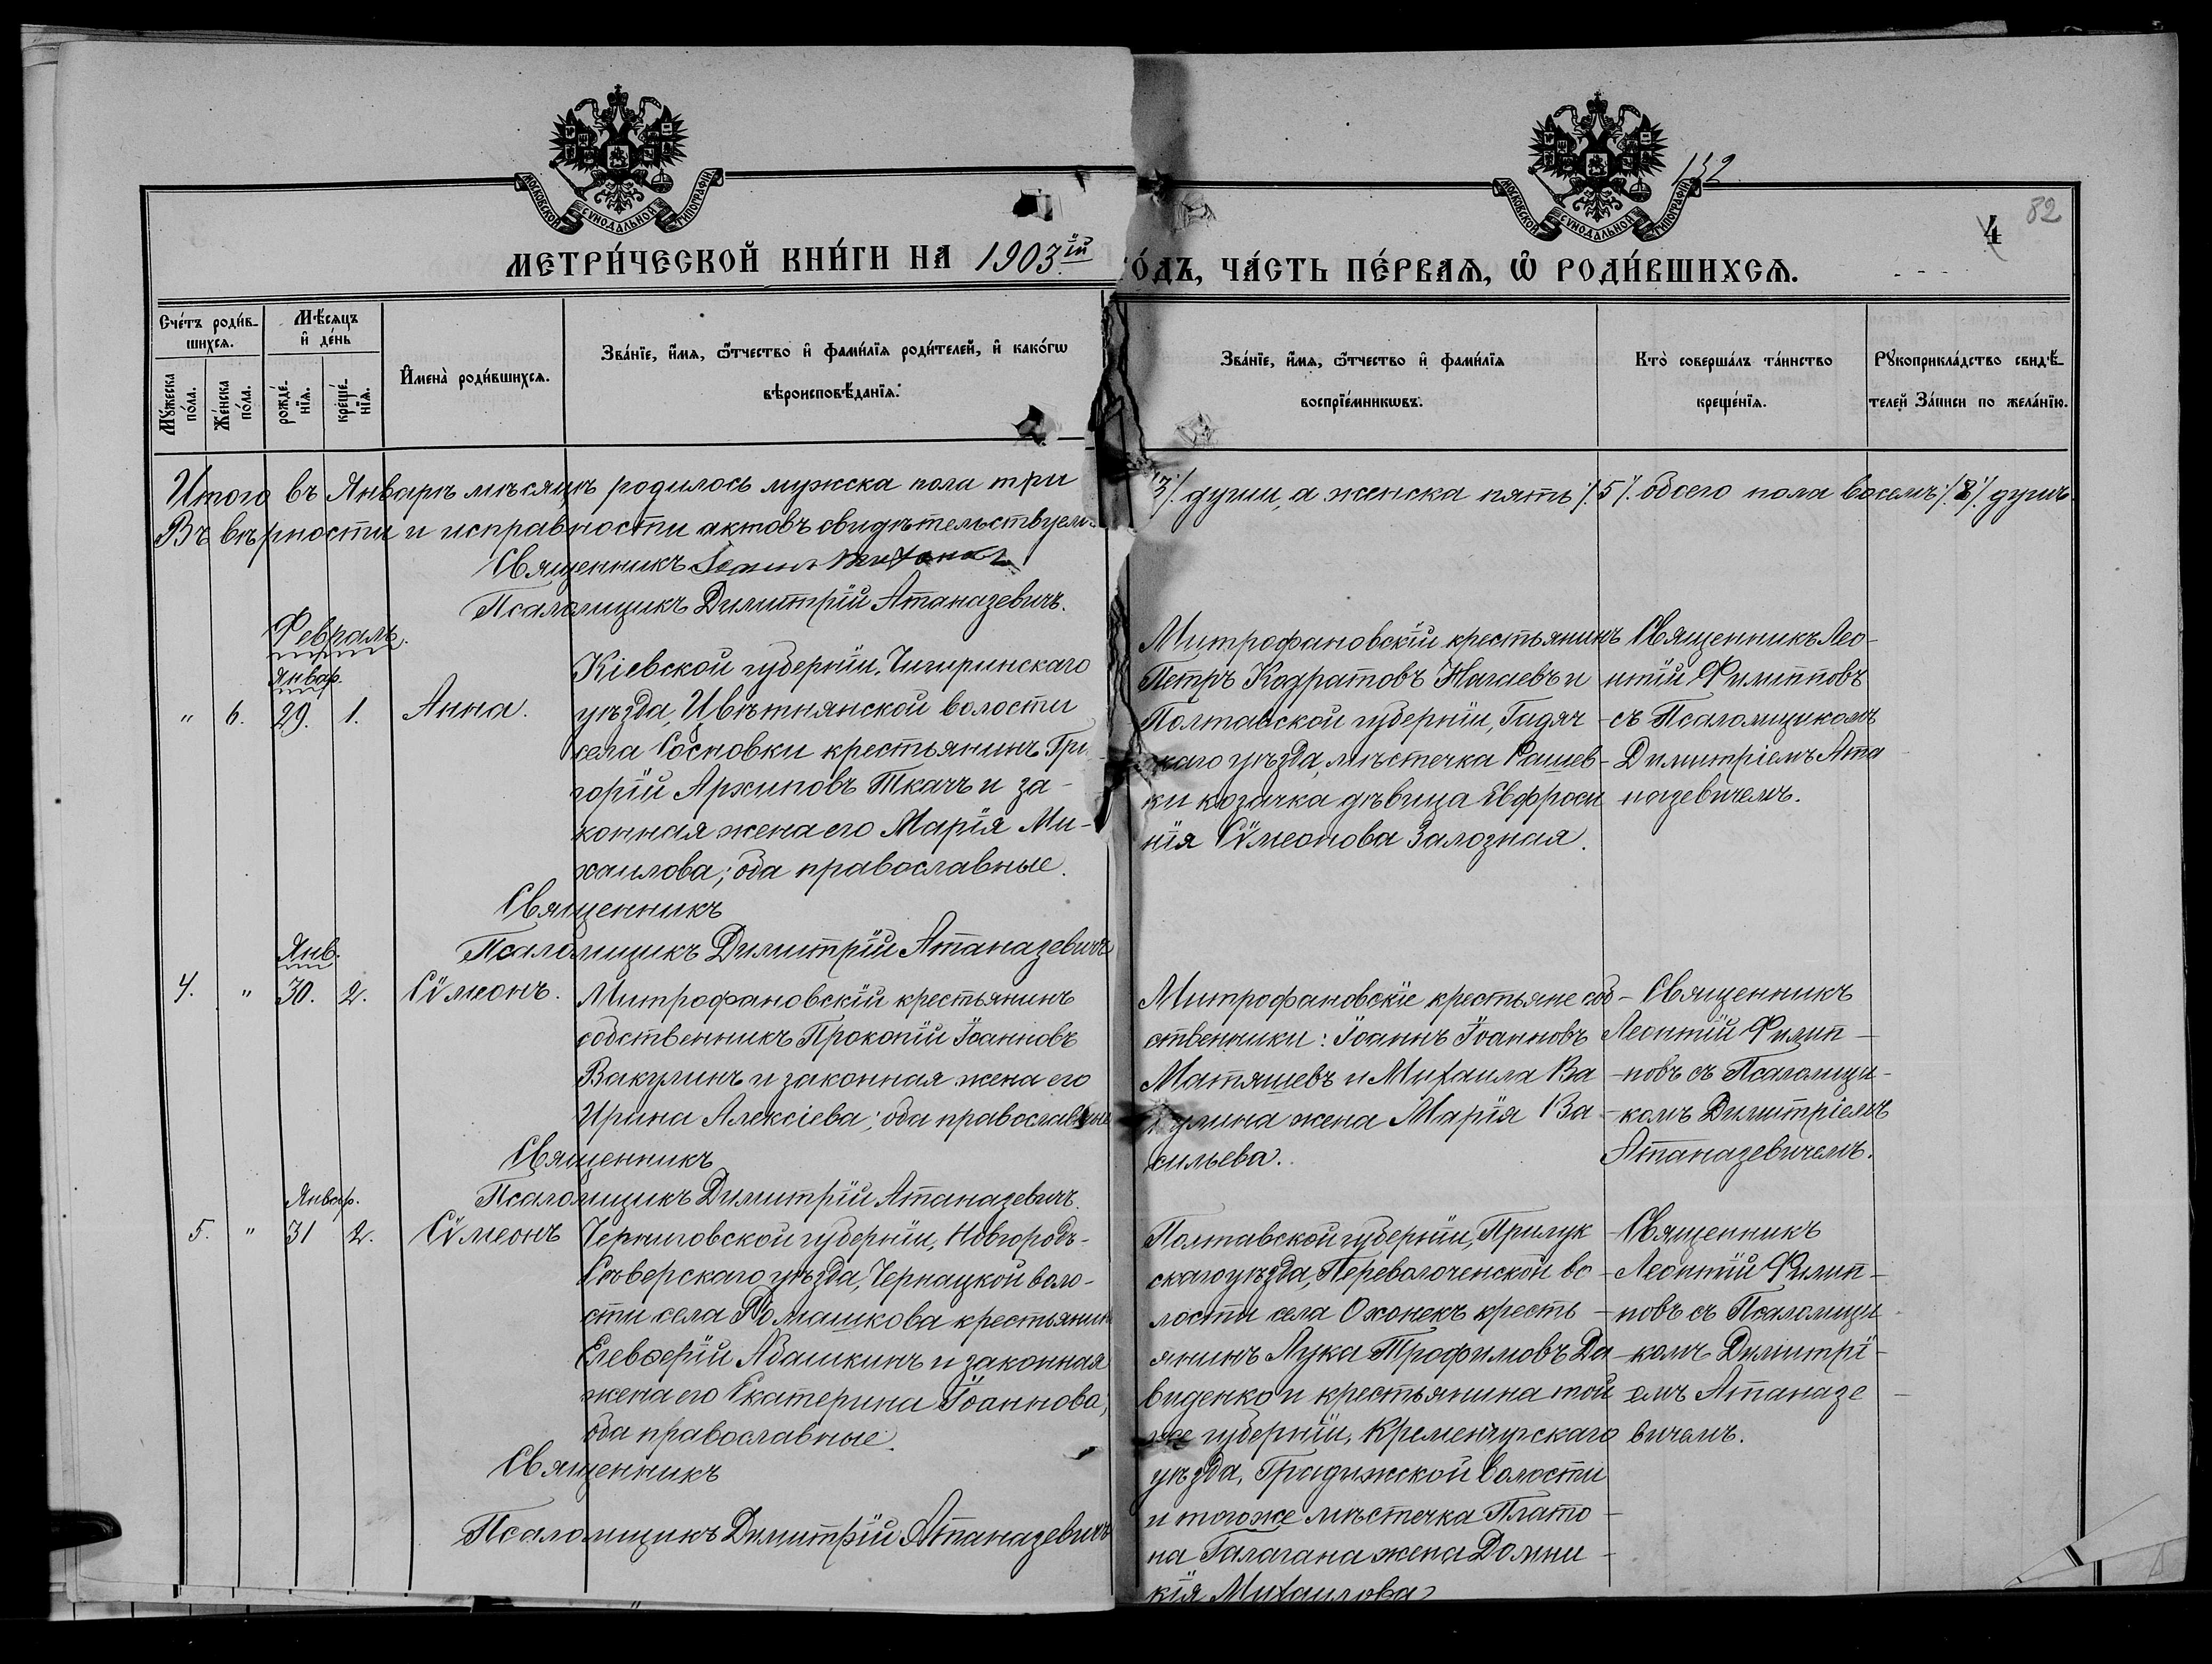 МОСКОВСКОЙ СѴНОДАЛЬНОЙ ТИПОГРАФІИ
МОСКОВСКОЙ СѴНОДАЛЬНОЙ ТИПОГРАФІИ
132
82
4
МЕТРИ́ЧЕСКОЙ КНИ́ГИ НА 1903ій
О́ДЪ, ЧА́СТЬ ПЕ́РВАѦ, Ѡ҆ РОДИ́ВШИХСѦ.
Сче́тъ роди́в-
шихсѧ.
Мꙋ́жеска по́ла.
Же́нска по́ла.
Мѣ́сѧцъ
и҆ де́нь
рожде́-
нїѧ.
креще́-
нїѧ.
И҆мена̀ роди́вшихсѧ.
Зва́нїе, и҆́мѧ, ѻ҆́тчество и҆ фами́лїѧ роди́телей, и҆ како́гѡ
вѣроисповѣ́данїѧ.
Зва́нїе, и҆́мѧ, ѻ҆́тчество и҆ фами́лїѧ
воспрїе́мникѡвъ.
Кто̀ соверша́лъ та́инство
креще́нїѧ.
Рꙋкоприкла́дство свидѣ́-
телей За́писи по жела́нїю.
Итого въ Январѣ мѣсяцѣ родилось мужска пола три
/3/ души, а женска пять /5/. обоего пола восемь /8/ душъ
Въ вѣрности и исправности актовъ свидѣтельствуемъ
Священникъ
Псаломщикъ Димитрій Атаназевичъ.
Февраль.
Январ.
" 6. 29. 1. Анна.
Кіевской губерніи, Чигиринскаго
уѣзда, Цвѣтнянской волости
села Сосновки крестьянинъ Гри
горій Архиповъ Ткачъ и за-
конная жена его Марія Ми-
хаилова; оба православные.
Митрофановскій крестьянинъ
Петръ Кодратовъ Нагаевъ и
Полтавской губерніи, Гадяч-
скаго уѣзда, мѣстечка Рашев-
ки козачка дѣвица Евфроси
нія Сѵмеонова Залозная.
Священникъ Лео-
нтій Филипповъ
съ Псаломщикомъ
Димитріемъ Ата
назевичемъ.
Священникъ
Псаломщикъ Димитрій Атаназевичъ
Янв.
4. " 30. 2. Сѵмеонъ.
Митрофановскій крестьянинъ
собственникъ Прокопій Іоанновъ
Вакулинъ и законная жена его
Ирина Алексіева; оба православные
Митрофановскіе крестьяне соб-
ственники: Іоаннъ Іоанновъ
Матяшевъ и Михаила Ва-
кулина жена Марія Ва-
сильева.
Священникъ
Леонтій Филип-
повъ съ Псаломщи-
комъ Димитріемъ
Атаназевичемъ.
Священникъ
Псаломщикъ Димитрій Атаназевичъ.
Январ.
5. " 31 2. Сѵмеонъ
Черниговской губерніи, Новгородъ-
Сѣверскаго уѣзда, Чернацкой воло-
сти села Ромашкова крестьянинъ
Елевѳерій Абашкинъ и законная
жена его Екатерина Іоаннова;
оба православные.
Полтавской губерніи, Прилук-
скаго уѣзда, Переволоченской во-
лости села Охонекъ кресть-
янинъ Лука Трофимовъ Да-
виденко и крестьянина той
же губерніи, Кременчугскаго
уѣзда, Градижской волости
и тогоже мѣстечка Плато-
на Галагана жена Домни-
кія Михаилова
Священникъ
Леонтій Филип-
повъ съ Псаломщи-
комъ Димитрі-
емъ Атаназе
вичемъ.
Священникъ
Псаломщикъ Димитрій Атаназевичъ